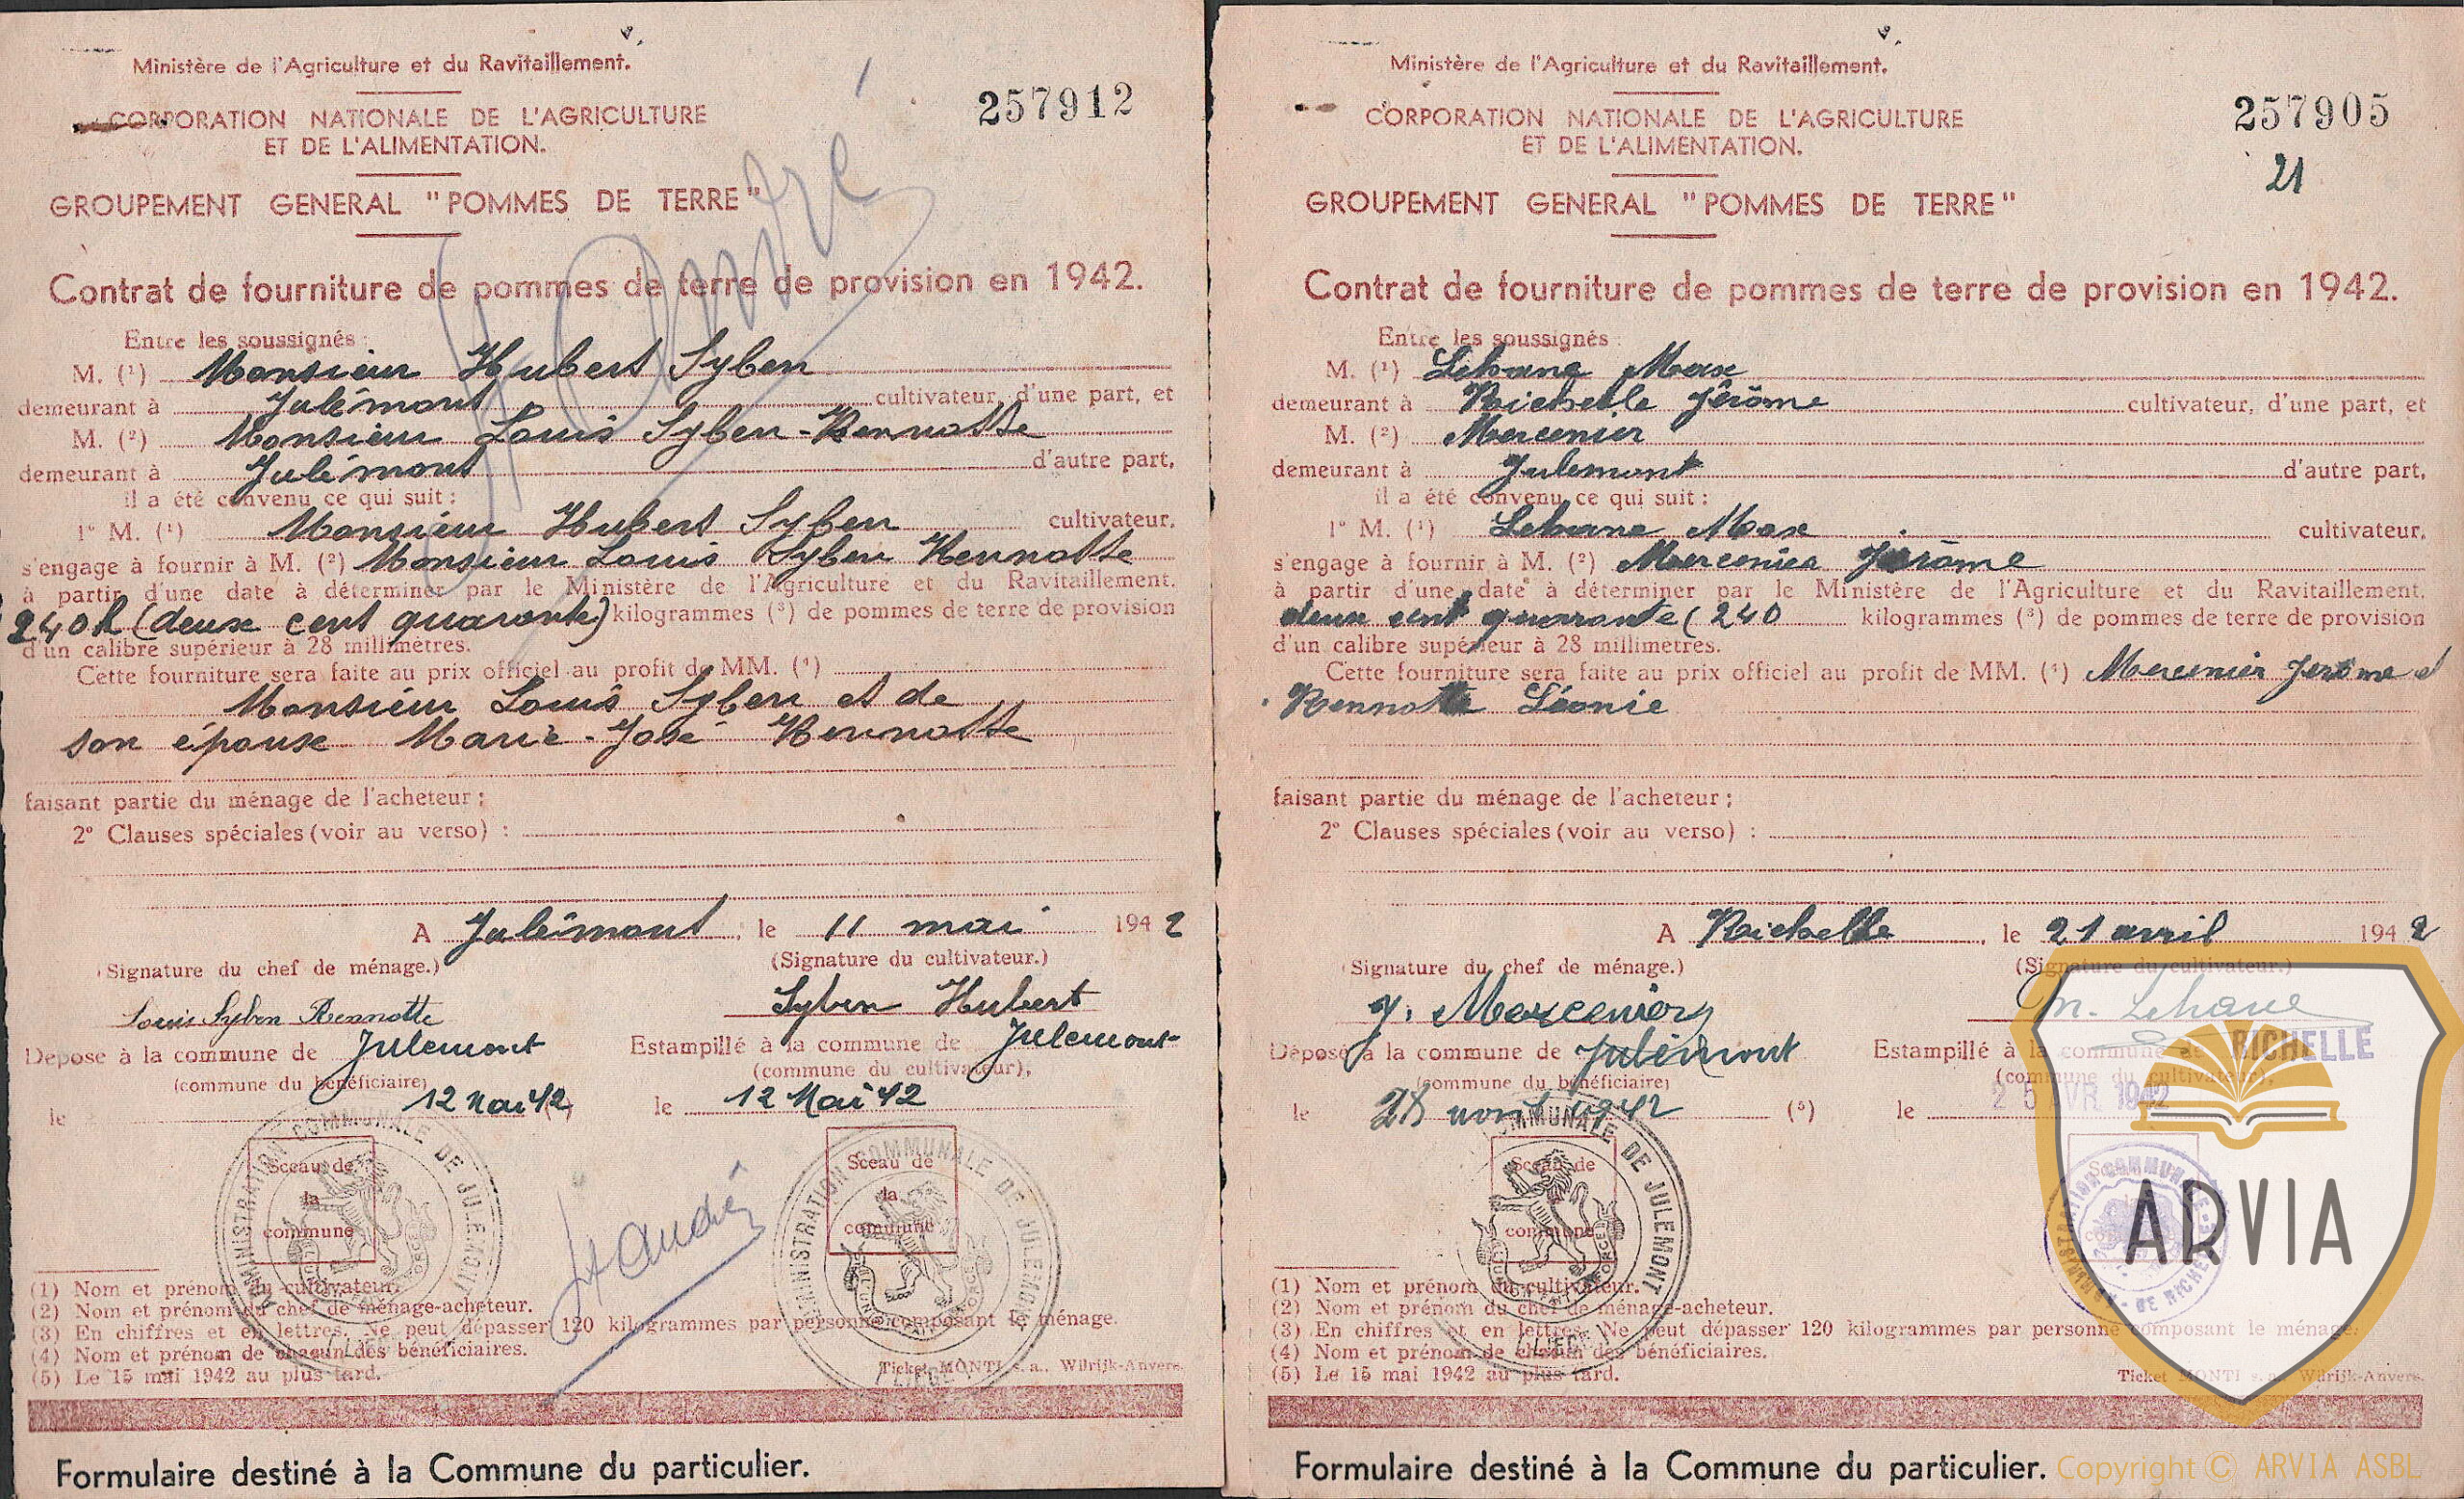 Ministère de l'Agriculture et du Ravitaillement.
CORPORATION NATIONALE DE L'AGRICULTURE
ET DE L'ALIMENTATION.
257912
GROUPEMENT GENERAL "POMMES DE TERRE"
Contrat de fourniture de pommes de terre de provision en 1942.
Entre les soussignés :
M. (1) Monsieur Hubert Syben
demeurant à Julémont cultivateur, d'une part, et
M. (2) Monsieur Louis Syben-Rennotte
demeurant à Julémont d'autre part,
il a été convenu ce qui suit :
1° M. (1) Monsieur Hubert Syben cultivateur,
s'engage à fournir à M. (2) Monsieur Louis Syben Rennotte
à partir d'une date à déterminer par le Ministère de l'Agriculture et du Ravitaillement,
240 k (deux cent quarante) kilogrammes (3) de pommes de terre de provision
d'un calibre supérieur à 28 millimètres.
Cette fourniture sera faite au prix officiel au profit de MM. (4)
Monsieur Louis Syben et de
son épouse Marie-José Rennotte
faisant partie du ménage de l'acheteur ;
2° Clauses spéciales (voir au verso) :
A Julémont, le 11 mai 1942
(Signature du chef de ménage.) (Signature du cultivateur.)
Louis Syben Rennotte Syben Hubert
Déposé à la commune de Julemont Estampillé à la commune de Julemont
(commune du bénéficiaire) (commune du cultivateur),
le 12 Mai 42 le 12 Mai 42
Sceau de la commune
Sceau de la commune
ADMINISTRATION COMMUNALE DE JULEMONT
LIEGE
ADMINISTRATION COMMUNALE DE JULEMONT
LIEGE
St André
St André
(1) Nom et prénom du cultivateur.
(2) Nom et prénom du chef de ménage-acheteur.
(3) En chiffres et en lettres. Ne peut dépasser 120 kilogrammes par personne composant le ménage.
(4) Nom et prénom de chacun des bénéficiaires.
(5) Le 15 mai 1942 au plus tard.
Ticket MONTI s. a., Wilrijk-Anvers.
Formulaire destiné à la Commune du particulier.
Ministère de l'Agriculture et du Ravitaillement.
CORPORATION NATIONALE DE L'AGRICULTURE
ET DE L'ALIMENTATION.
257905
21
GROUPEMENT GENERAL "POMMES DE TERRE"
Contrat de fourniture de pommes de terre de provision en 1942.
Entre les soussignés :
M. (1) Lehane Max
demeurant à Richelle Jérôme cultivateur, d'une part, et
M. (2) Mercenier
demeurant à Julemont d'autre part,
il a été convenu ce qui suit :
1° M. (1) Lehane Max cultivateur,
s'engage à fournir à M. (2) Mercenier Jérôme
à partir d'une date à déterminer par le Ministère de l'Agriculture et du Ravitaillement,
deux cent quarante (240 kilogrammes (3) de pommes de terre de provision
d'un calibre supérieur à 28 millimètres.
Cette fourniture sera faite au prix officiel au profit de MM. (4) Mercenier Jerome et
Rennotte Léonie
faisant partie du ménage de l'acheteur ;
2° Clauses spéciales (voir au verso) :
A Richelle, le 21 avril 1942
(Signature du chef de ménage.) (Signature du cultivateur.)
J. Mercenier M. Lehane
Déposé à la commune de Julémont Estampillé à la commune de RICHELLE
(commune du bénéficiaire) (commune du cultivateur),
le 28 1942 (5) le 25 AVR. 1942
Sceau de la commune
COMMUNALE DE JULEMONT
LIEGE
ARVIA
(1) Nom et prénom du cultivateur.
(2) Nom et prénom du chef de ménage-acheteur.
(3) En chiffres et en lettres. Ne peut dépasser 120 kilogrammes par personne composant le ménage.
(4) Nom et prénom de chacun des bénéficiaires.
(5) Le 15 mai 1942 au plus tard.
Ticket MONTI s. a., Wilrijk-Anvers.
Formulaire destiné à la Commune du particulier.
Copyright © ARVIA ASBL